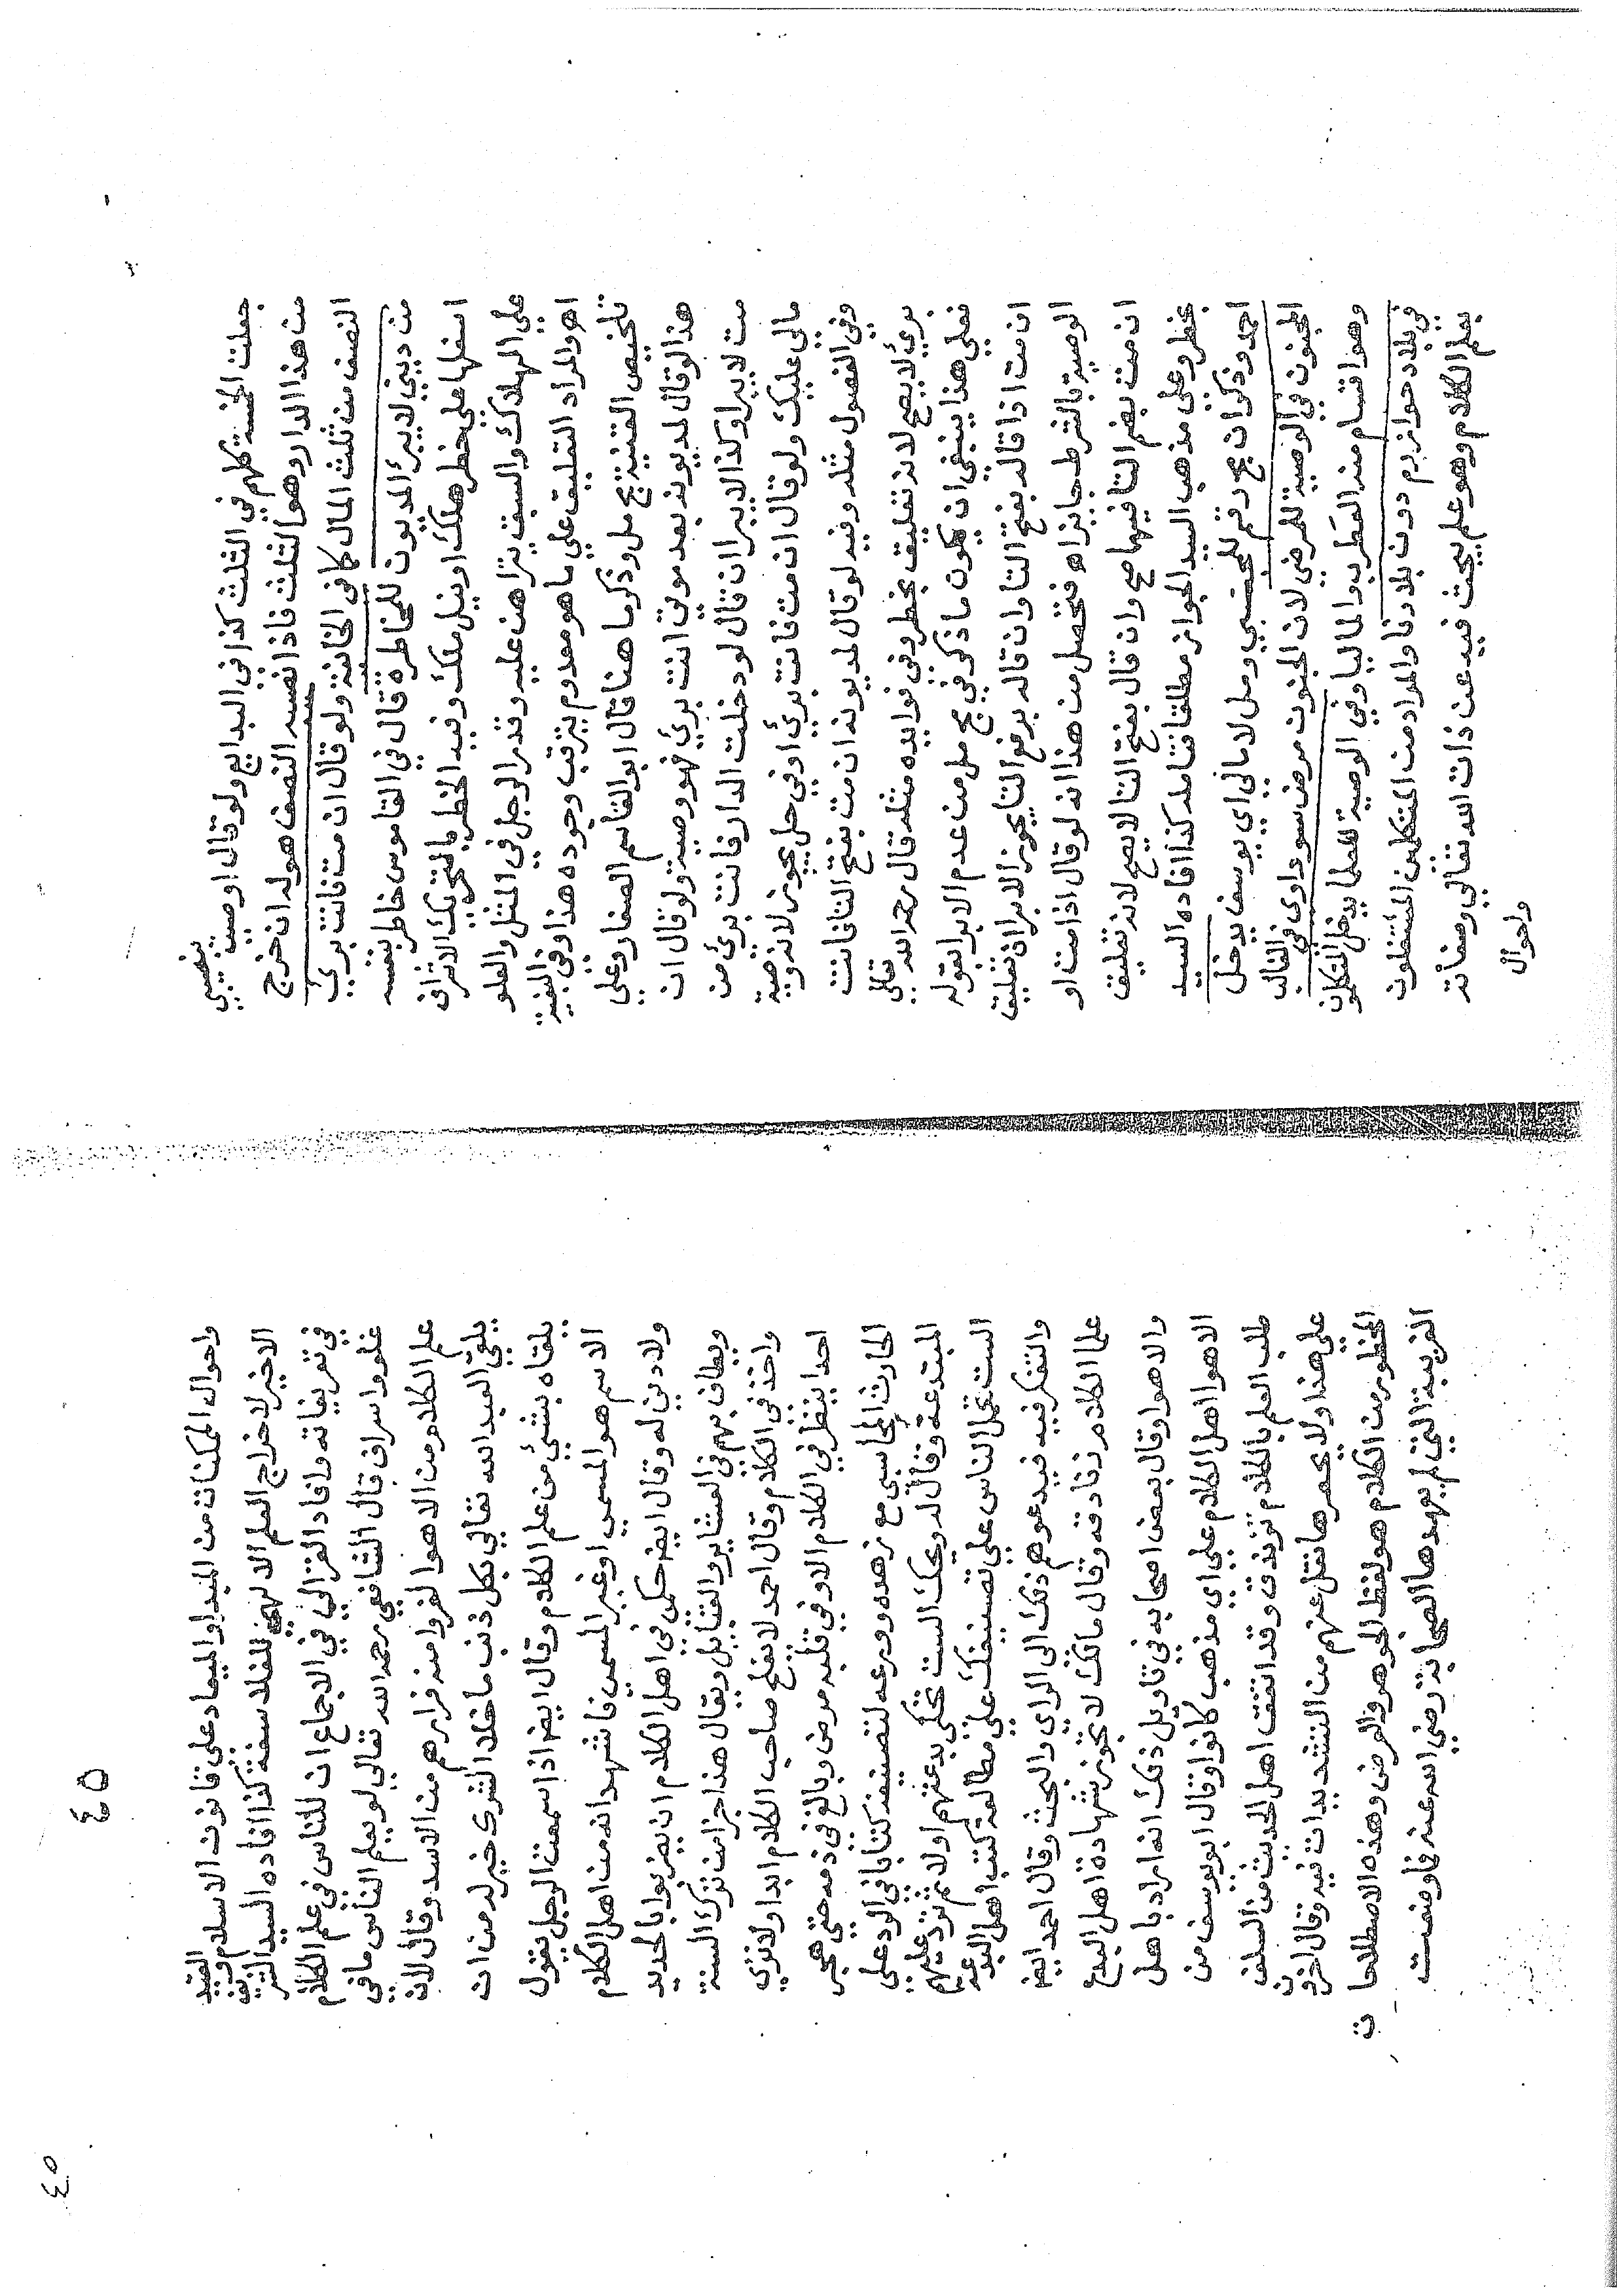 جعلت الخمسة كلهم في الثلث كذا في البدايع ولو قال اوصيت بنصيبي
من هذا الدار وهو الثلث فاذا نصيبه النصف هو له ان خرج
النصف من ثلث المال كافي الخانية ولو قال ان مت فانت بري
من ديني لا يبرأ المديون للمخاطرة قال في القاموس خاطر بنفسه
اسفلها علي خطر هلك او نيل ملك وفيه الخطر بالتحريك الاشراف
علي الهلاك والسبق يتراهن عليه وقدر الرجل في المثل والعلو
اهو المراد التعليق علي ما هو معدوم يترقب وجوده هذا وفي القنية
تلخيص القنية مج مل وذكر ما هنا قال ابو القاسم الصفار وعلي
هذا لو قال لمديونه بعد موتي انت بري فهو وصية ولو قال ان
مت لا يبرا وكذا لا يبرا ان قال لو دخلت الدار فانت برئ من
مالي عليك ولو قال ان مت فانت بري او في حل يجوز لانه وصية
وفي الفصول مثله وفيه لو قال لمديونه ان مت بفتح التا فانت
بري لا يصح لانه تعليق بخطر وفي فوايده مثله قال رحمه الله تعالي
فعلي هذا ينبغي ان يكون ما ذكر في مج مل من عدم الابرا بقوله
ان مت اذا قاله بفتح التا وان قاله برفع التا يجوز الابرا لان تعليق
الوصية بالشرط جايز اه فتحصل من هذا انه لو قال اذا مت او
ان مت بضم التا فيهما صح وان قال بفتح التا لا يصح لانه تعليق
بخطر وعلي مذهب السيد الجواز مطلقا فتامله كذا افاده السيد
احمد وذكر ان مج رقم للمحسبي ومل لامالي ابي يوسف يدخل
المجنون في الوصية للمرضي لان الجنون مرض سوداوي في الغالب
وهو اقسام منه القطرب والماليا وفي الوصية للعلما يدخل المتكلمون
في بلاد خوارزم دون بلادنا والمراد من المتكلمين المشتغلون
بعلم الكلام وهو علم يبحث فيه عن ذات الله تعالي وصفاته
واحوال
٤٥
٤٥
واحوال الممكنات من المبدا والميعاد علي قانون الاسلام والقيد
الاخير لاخراج العلم الالهي للفلاسفة كذا افاده السيد الشريف
في تعريفاته وافاد الغزالي في الاجماع ان للناس في علم الكلام
غلو واسراف قال الشافعي رحمه الله تعالي لو يعلم الناس ما في
علم الكلام من الاهوا لفروا منه فرارهم من الاسد وقال لان
يلقي العبد الله تعالي بكل ذنب ما خلا الشرك خير له من ان
يلقاه بشئ من علم الكلام وقال ايضا اذا سمعت الرجل يقول
الاسم هو المسمي او غير المسمي فاشهد انه من اهل الكلام
ولا دين له وقال ايضا حكمي في اهل الكلام ان يضربوا بالحديد
ويطاف بهم في العشاير والقبايل ويقال هذا جزا من ترك السنة
واخذ في الكلام وقال احمد لا يفلح صاحب الكلام ابدا ولا نري
احدا ينظر في الكلام الا وفي قلبه مرض وبالغ في ذمه حتي هجر
الحارث المحاسبي مع زهده وورعه لتصنيفه كتابا في الرد علي
المبتدعة وقال له ويحك الست تحكي بدعتهم اولا ثم ترد عليهم
الست تحمل الناس علي تصنيفك علي مطالعة كتب اهل البدعة
والتفكر فيه فيدعوهم ذلك الي الراي والبحث وقال احمد ايضا
علما الكلام زنادقه وقال مالك لا تجوز شهادة اهل البدع
والاهوا وقال بعض اصحابه في تاويل ذلك انه اراد باهل
الاهوا اهل الكلام علي اي مذهب كانوا وقال ابو يوسف من
طلب العلم بالكلام تزندق وقد اتفق اهل الحديث من السلف
علي هذا ولا يحصر ما نقل عنهم من التشديدات فيه وقال اخرون
المحظور من الكلام هو لفظ الجوهر والعرض وهذه الاصطلاحات
الغريبة التي لم يعهدها الصحابة رضي الله عنهم فما وضعت